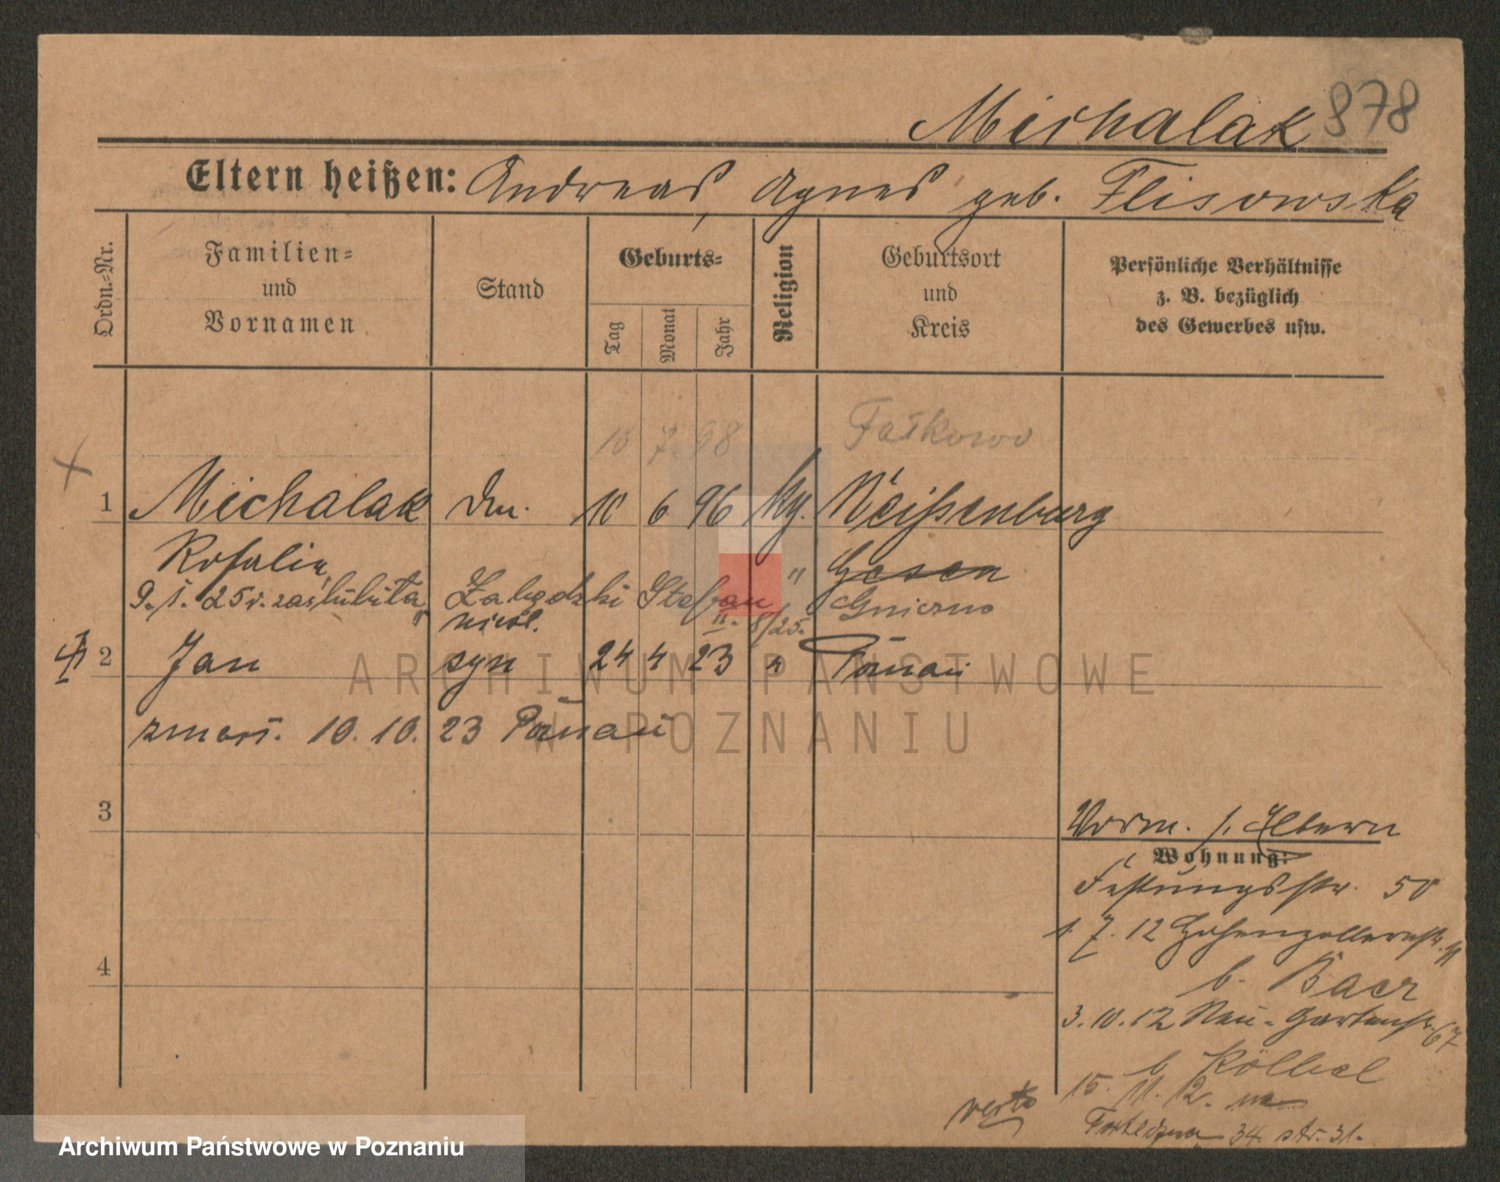 Michalak 878
Eltern heißen: Andreas, Agnes geb. Flisowska
Ordn.-Nr.
Familien-
und
Vornamen
Stand
Geburts-
Tag
Monat
Jahr
Religion
Geburtsort
und
Kreis
Persönliche Verhältnisse
z. B. bezüglich
des Gewerbes usw.
10 7. 98 Fałkowo
1 Michalak 10 6 96 Weißenburg
Rosalia " Gnesen
9. 1. 25 r. zaślubiła Stefan Gniezno
II. 8/25.
2 Jan syn 24 4 23 " Poznań
zmarł. 10. 10. 23 Poznań
3
Vorm. s. Eltern
Wohnung:
Festungsstr. 50
4
1. 7. 12 Hohenzollernstr.
b. Baer
3. 10. 12 Neue Gartenstr. 67
b. Kölbel
15. 11. 12. na
verte
34 str. 31.
ARCHIWUM PAŃSTWOWE
W POZNANIU
Archiwum Państwowe w Poznaniu